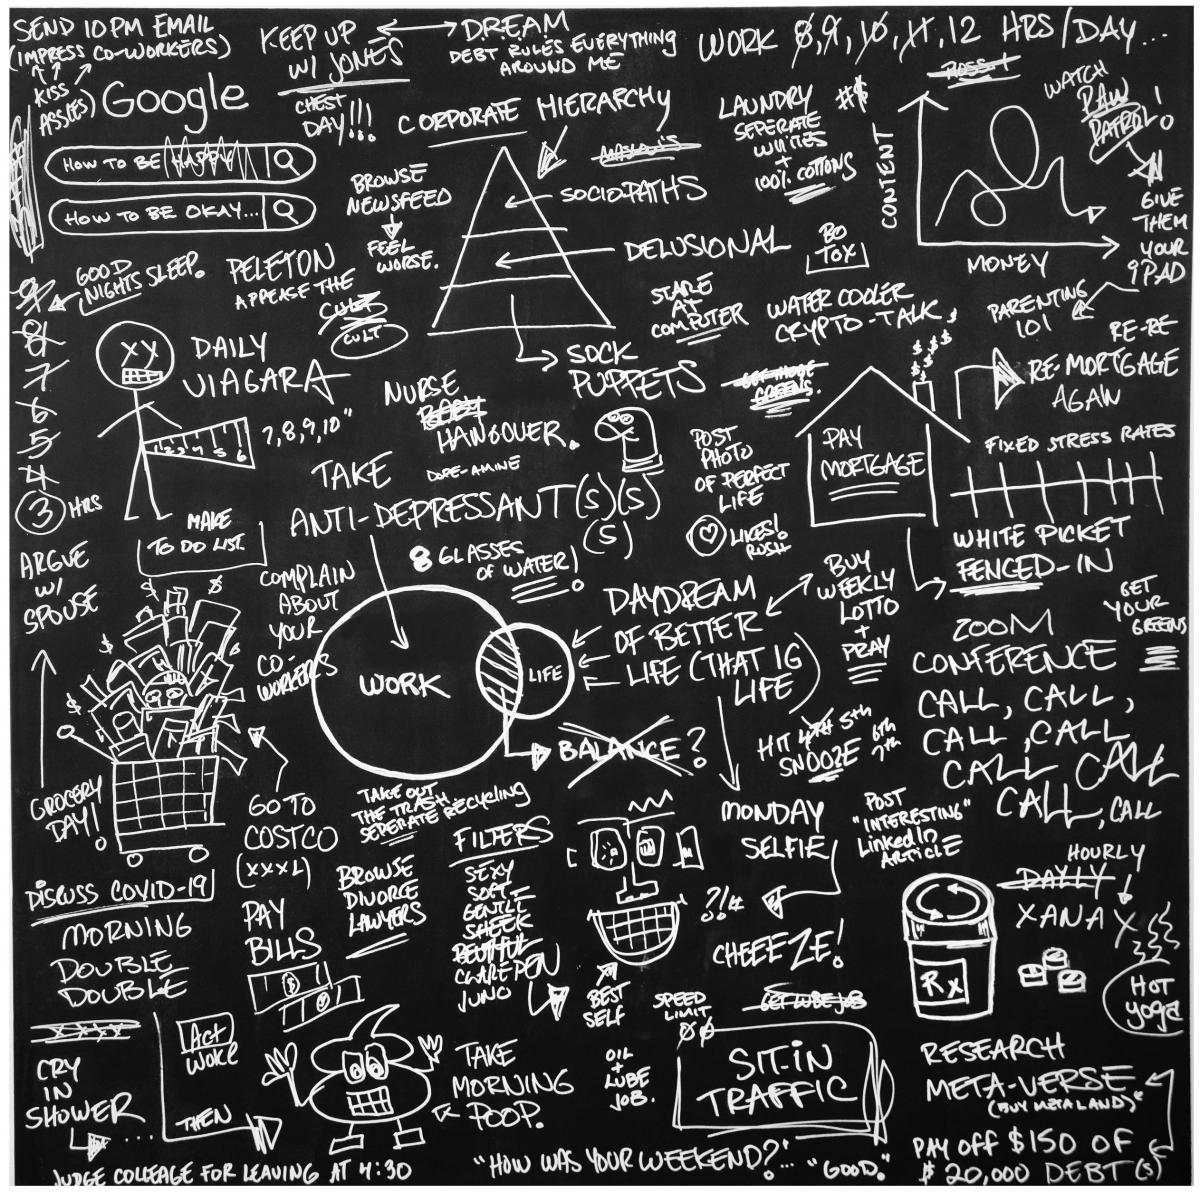 SEND 10PM EMAIL
(IMPRESS CO-WORKERS)
KISS
ASSES)
KEEP UP
W/ JONES
DREAM
DEBT RULES EVERYTHING
AROUND ME
WORK 8,9,10,11,12 HRS/DAY...
Google
HOW TO BE HAPPY
HOW TO BE OKAY...
CHEST
DAY!!!
CORPORATE HIERARCHY
MASLOW'S
SOCIOPATHS
DELUSIONAL
SOCK
PUPPETS
BROWSE
NEWSFEED
FEEL
WORSE.
LAUNDRY #$
SEPERATE
WHITES
+
100% COTTONS
CONTENT
MONEY
WATCH
PAW
PATROL!
GIVE
THEM
YOUR
9PAD
PARENTING
101
BO
TOX
GOOD
NIGHTS SLEEP.
9
8
7
6
5
4
3 HRS
PELETON
APPEASE THE
CULT
DAILY
VIAGARA
1 2 3 4 5 6
7,8,9,10"
STARE
AT
COMPUTER
WATER COOLER
CRYPTO-TALK
GET THOSE
GREENS.
RE-RE
RE-MORTGAGE
AGAIN
PAY
MORTGAGE
FIXED STRESS RATES
WHITE PICKET
FENCED-IN
NURSE
BABY
HANGOVER.
DOPE-AMINE
POST
PHOTO
OF PERFECT
LIFE
LIKES!
RUSH
TAKE
ANTI-DEPRESSANT(S)(S)
(S)
MAKE
TO DO LIST.
8 GLASSES
OF WATER!
ARGUE
W/
SPOUSE
COMPLAIN
ABOUT
YOUR
CO-
WORKERS
WORK
LIFE
BALANCE?
DAYDREAM
OF BETTER
LIFE (THAT IG
LIFE)
BUY
WEEKLY
LOTTO
+
PRAY
GET
YOUR
GREENS
ZOOM
CONFERENCE
CALL, CALL,
CALL, CALL
CALL CALL
CALL, CALL
HIT 4TH 5th 6th
SNOOZE 7th
GROCERY
DAY!
GO TO
COSTCO
(XXXL)
TAKE OUT
THE TRASH
SEPERATE RECYCLING
FILTERS
SEXY
SOFT
GENTLE
SHEEK
BEUTIFUL
CLAREPEN
JUNO
BEST
SELF
MONDAY
SELFIE
?!#
CHEEEZE!
POST
"INTERESTING"
LinkedIn
ARTICLE
HOURLY
DAYLY
XANAX
Rx
HOT
yoga
DISCUSS COVID-19
MORNING
DOUBLE
DOUBLE
PAY
BILLS
BROWSE
DIVORCE
LAWYERS
CRY
IN
SHOWER
...
ACT
WOKE
THEN
TAKE
MORNING
POOP.
OIL
+
LUBE
JOB.
SPEED
LIMIT
GET LUBE JOB
SIT-IN
TRAFFIC
RESEARCH
META-VERSE
(BUY META LAND)
PAY OFF $150 OF
$20,000 DEBT(S)
JUDGE COLLEAGE FOR LEAVING AT 4:30
"HOW WAS YOUR WEEKEND?"... "GOOD."